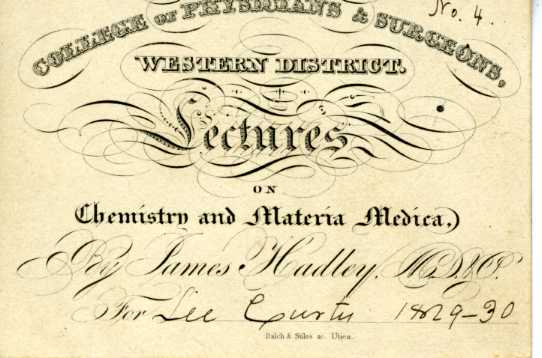 No. 4.
COLLEGE OF PHYSICIANS & SURGEONS,
WESTERN DISTRICT.
Lectures
ON
Chemistry and Materia Medica,)
By James Hadley. M.D.&P.
For Lee Curtis 1829-30
Balch & Stiles sc. Utica.